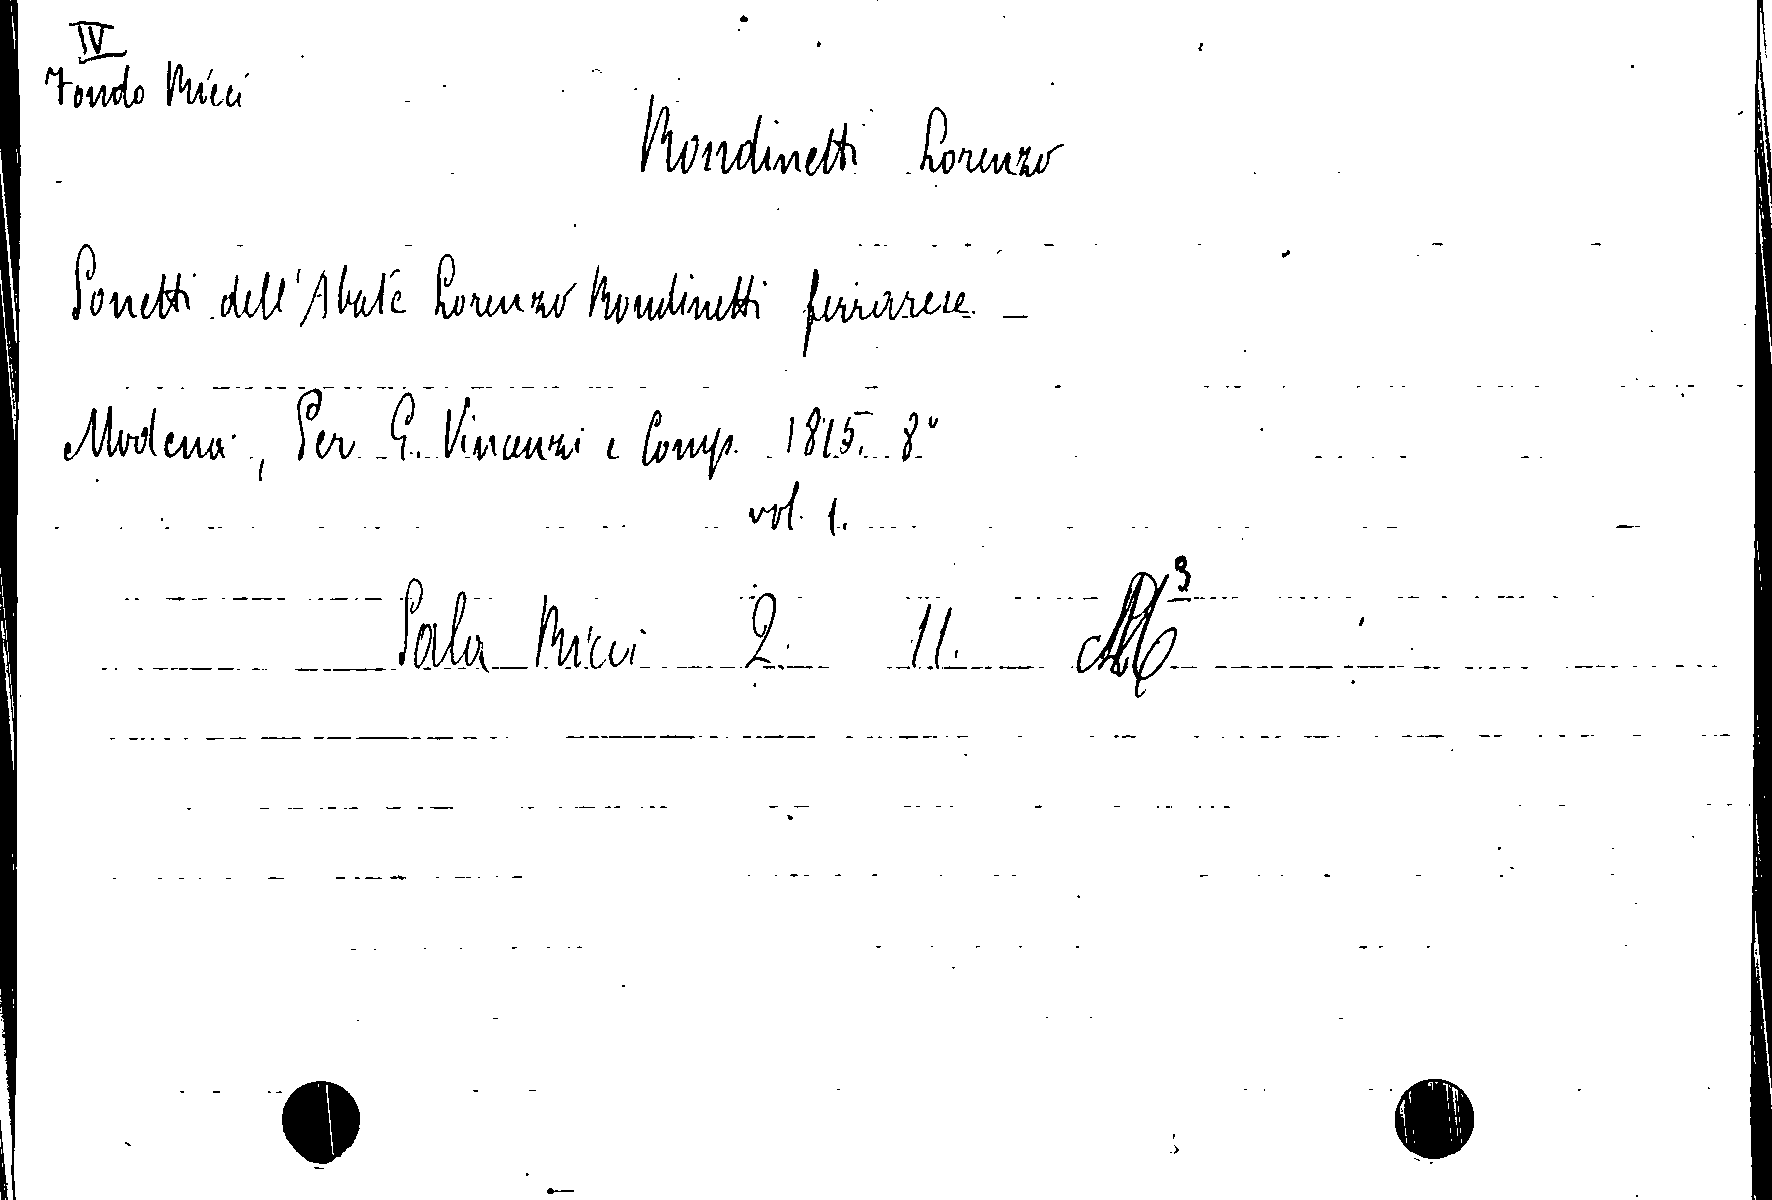 IV
Fondo Ricci
Rondinetti Lorenzo
Sonetti dell'Abate Lorenzo Rondinetti ferrarese. —
Modena, Per G. Vincenzi e Comp. 1815. 8°
vol. 1.
Sala Ricci 2. 11. M³